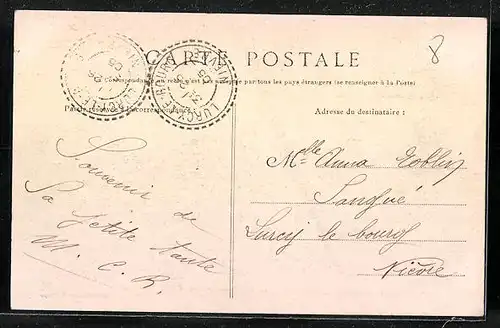 CARTE POSTALE
8
La Correspondance au recto n'est pas acceptée par tous les pays étrangers (se renseigner à la Poste)
Partie réservée à la Correspondance
Adresse du destinataire :
LURCY-LE-BOURG
NIÈVRE
Souvenir de
Sa petite tante
M. C. R.
Melle Anna
Sangué
Lurcy le bourg
Nièvre